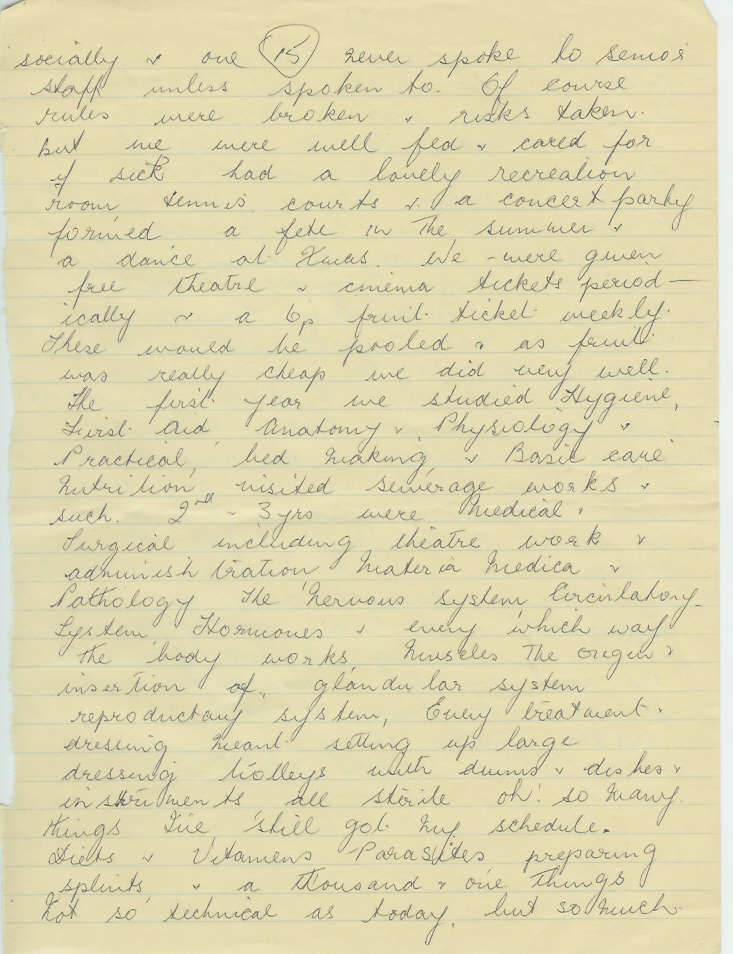 socially & one (15) never spoke to senior
staff unless spoken to. Of course
rules were broken & risks taken.
But we were well fed & cared for
if sick had a lovely recreation
room tennis courts & a concert party
formed a fete in the summer &
a dance at Xmas. We were given
free theatre & cinema tickets period-
ically & a 6p fruit ticket weekly.
These would be pooled & as fruit
was really cheap we did very well.
The first year we studied Hygiene,
First Aid Anatomy & Physiology &
Practical, bed making, & Basic care
Nutrition, visited sewerage works &
such. 2nd - 3yrs were Medical &
Surgical including theatre work &
administration Materia Medica &
Pathology The Nervous System Circulatory
System, Hormones & every which way
the body works, Muscles The origin &
insertion of, glandular system
reproductory system, Every treatment &
dressing meant setting up large
dressing trolleys with drums & dishes &
instruments all sterile oh! so many
things I've still got my schedule.
Diets & Vitamens Parasites preparing
splints & a thousand & one things
not so technical as today, but so much